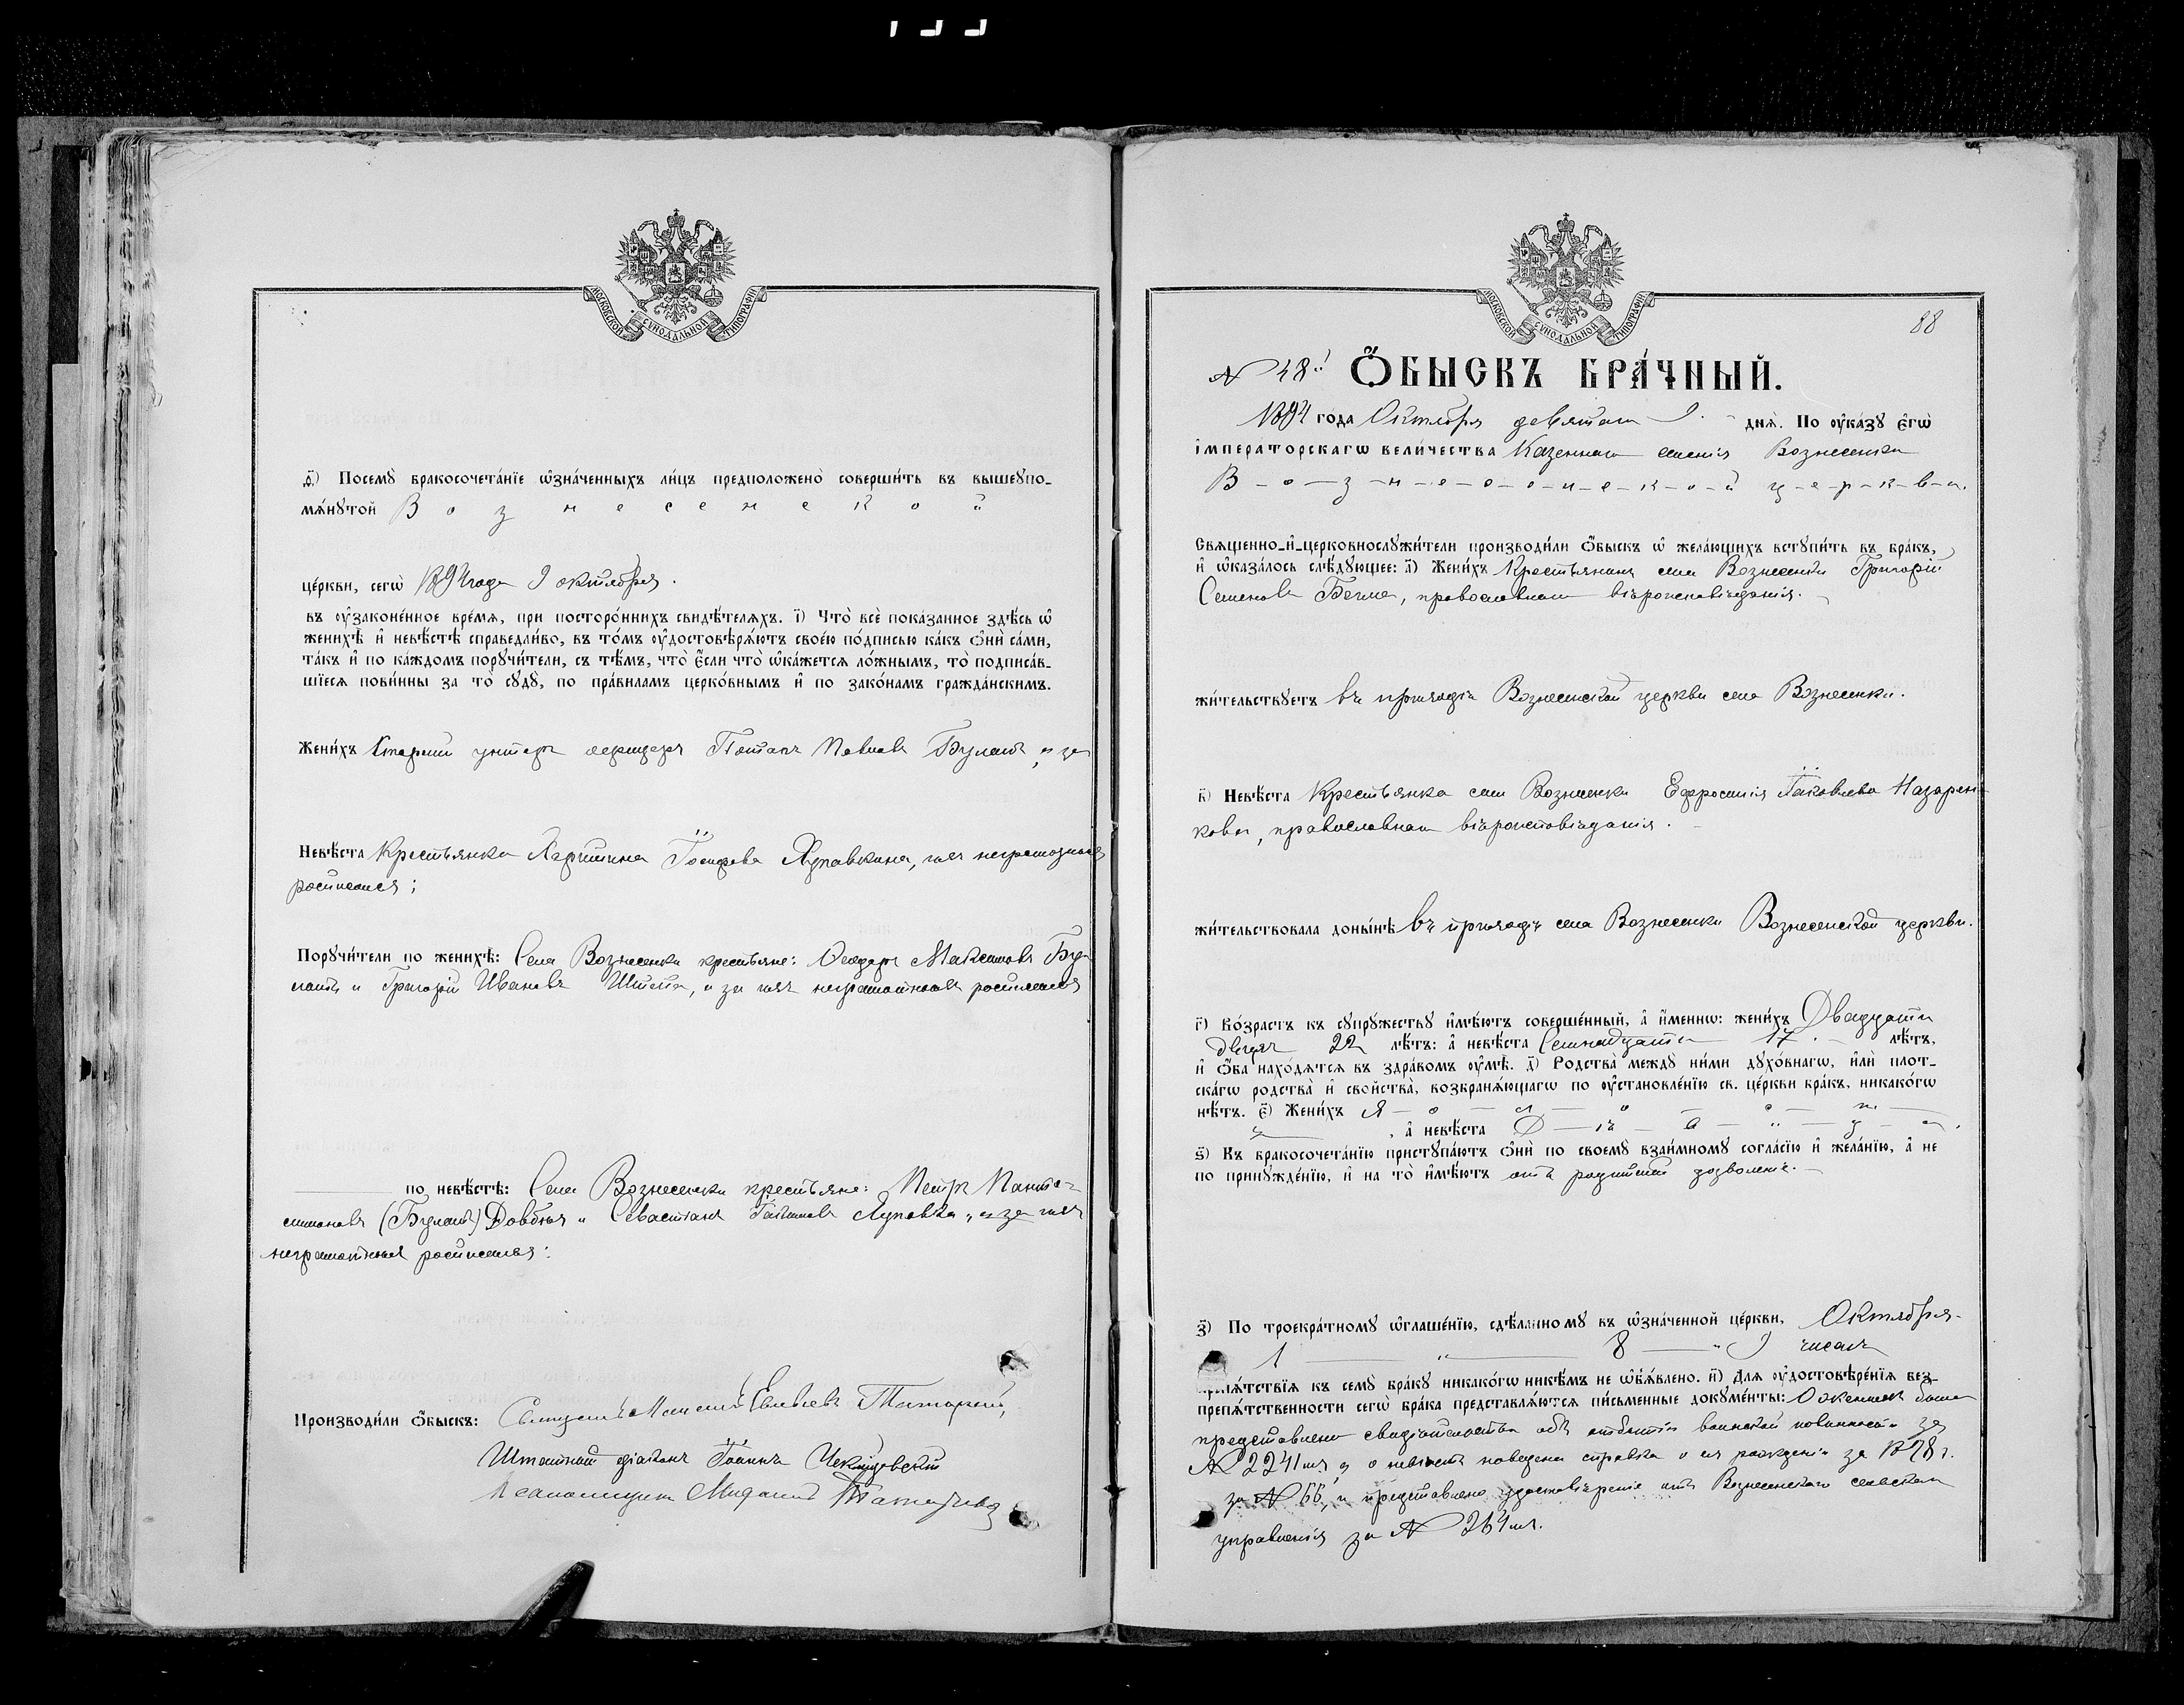 МОСКОВСКОЙ СѴНОДАЛЬНОЙ ТИПОГРАФІИ
Посемꙋ̀ бракосочета́нїе ѡ҆зна́ченныхъ ли́цъ предположено̀ соверши́ть въ вышеꙋпо-
мѧ́нꙋтой В о з н е с е н с к о й
це́ркви, сегѡ̀ 1894 года 9 октября.
въ ᲂу҆зако́ненное вре́мѧ, при посторо́ннихъ свидѣ́телѧхъ. і҃) Что̀ всѐ пока́занное здѣ́сь ѡ҆
женихѣ̀ и҆ невѣ́стѣ справедли́во, въ то́мъ ᲂу҆достовѣрѧ́ютъ свое́ю по́дписью ка́къ ѻ҆нѝ са́ми,
та́къ и҆ по ка́ждомъ порꙋчи́тели, съ тѣ́мъ, что̀ є҆́сли что̀ ѡ҆ка́жетсѧ ло́жнымъ, то̀ подписа́в-
шїесѧ пови́нны за то̀ сꙋдꙋ̀, по пра́виламъ церко́внымъ и҆ по зако́намъ гражда́нскимъ.
Жени́хъ Старшій унтеръ офицеръ Потапъ Павловъ Булатъ, и за
Невѣ́ста Крестьянка Іосифова
росписался;
Порꙋчи́тели по женихѣ̀: Села Вознесенки крестьяне: Ѳеодоръ Максимовъ Бу-
латъ и Григорій Ивановъ и за нихъ неграмотныхъ росписался
по невѣ́стѣ: Села Вознесенки крестьяне: Петръ Панте-
(Булатъ) Довбня и Севастіанъ и за нихъ
неграмотныхъ росписался:
Производи́ли ѻ҆́быскъ: Священникъ
Штатный діаконъ Іоаннъ
Псаломщикъ
МОСКОВСКОЙ СѴНОДАЛЬНОЙ ТИПОГРАФІИ
88
N 48й Ѻ҆́БЫСКЪ БРА́ЧНЫЙ.
1894 го́да Октября девятаго 9 днѧ̀. По ᲂу҆ка́зꙋ є҆гѡ̀
і҆мпера́торскагѡ вели́чества Казеннаго селенія Вознесенки
В-о-з-н-е-с-е-н-с-к-о-й ц-е-р-к-в-и.
Свѧще́нно-и҆-церковнослꙋжи́тели производи́ли ѻ҆́быскъ ѡ҆ жела́ющихъ встꙋпи́ть въ бра́къ,
и҆ ѡ҆каза́лось слѣ́дꙋющее: а҃) Жени́хъ Крестьянинъ села Вознесенки Григорій
Семеновъ Бегма, православнаго вѣроисповѣданія.
жи́тельствꙋетъ въ приходѣ Вознесенской церкви села Вознесенки.
в҃) Невѣ́ста Крестьянка села Вознесенки Ефросинія Іаковлева Назарен-
кова, православнаго вѣроисповѣданія.
жи́тельствовала доны́нѣ въ приходѣ села Вознесенки Вознесенской церкви.
г҃) Во́зрастъ къ сꙋпрꙋ́жествꙋ и҆мѣ́ютъ соверше́нный, а҆ и҆́меннѡ: жени́хъ Двадцати
двухъ 22 лѣ́тъ: а҆ невѣ́ста Семнадцати 17 лѣ́тъ,
и҆ ѻ҆́ба нахо́дѧтсѧ въ здра́вомъ ᲂу҆мѣ̀. д҃) Родства̀ междꙋ̀ ни́ми дꙋхо́внагѡ, и҆лѝ плот-
ска́гѡ родства̀ и҆ свойства̀, возбранѧ́ющагѡ по ᲂу҆становле́нїю св. це́ркви бра́къ, никако́гѡ
нѣ́тъ. є҃) Жени́хъ Х-о-л-о-с-т-
ъ, а҆ невѣ́ста Д-ѣ-в-и-ц-а.
ѕ҃) Къ бракосочета́нїю пристꙋпа́ютъ ѻ҆нѝ по своемꙋ̀ взаи́мномꙋ согла́сїю и҆ жела́нїю, а҆ не
по принꙋжде́нїю, и҆ на то̀ и҆мѣ́ютъ отъ родителей дозволеніе.
з҃) По троекра́тномꙋ ѡ҆глаше́нїю, сдѣ́ланномꙋ въ ѡ҆зна́ченной це́ркви, Октября
1 " 8 " 9 числъ
препѧ́тствїѧ къ семꙋ̀ бра́кꙋ никако́гѡ никѣ́мъ не ѡ҆б̾ѧ́влено. и҃) Длѧ ᲂу҆достовѣре́нїѧ без-
препѧ́тственности сегѡ̀ бра́ка представлѧ́ютсѧ пи́сьменные докꙋме́нты: О женихѣ было
представлено свидѣтельство объ отбытіи воинской повинности за
N 2241мъ, о невѣстѣ наведена справка о ея рожденіи за 1878 г.
за N 66, и представлено удостовѣреніе отъ Вознесенскаго сельскаго
управленія за N 264мъ.